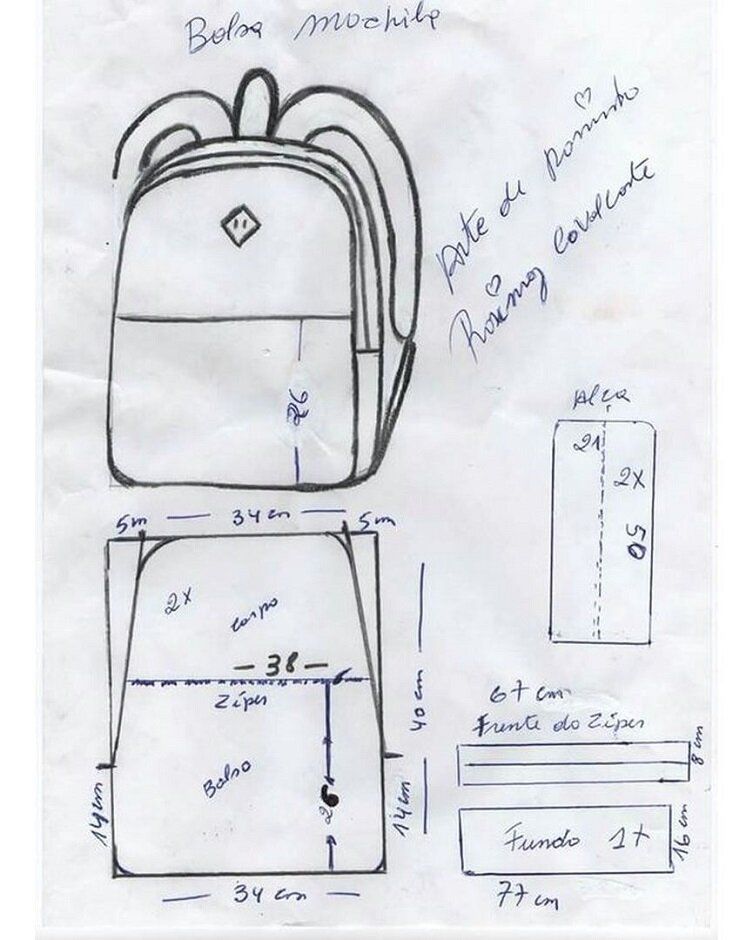 Bolsa mochila
Arte de Rosinha
Rosimag Cavalcante
26
Alça
21
2x
50
5m — 34 cm — 5m
2x
corpo
— 38 —
Zíper
Bolso
26
40 cm
14 cm
14 cm
— 34 cm —
67 cm
Frente do Zíper
8 cm
Fundo 1x
16 cm
77 cm